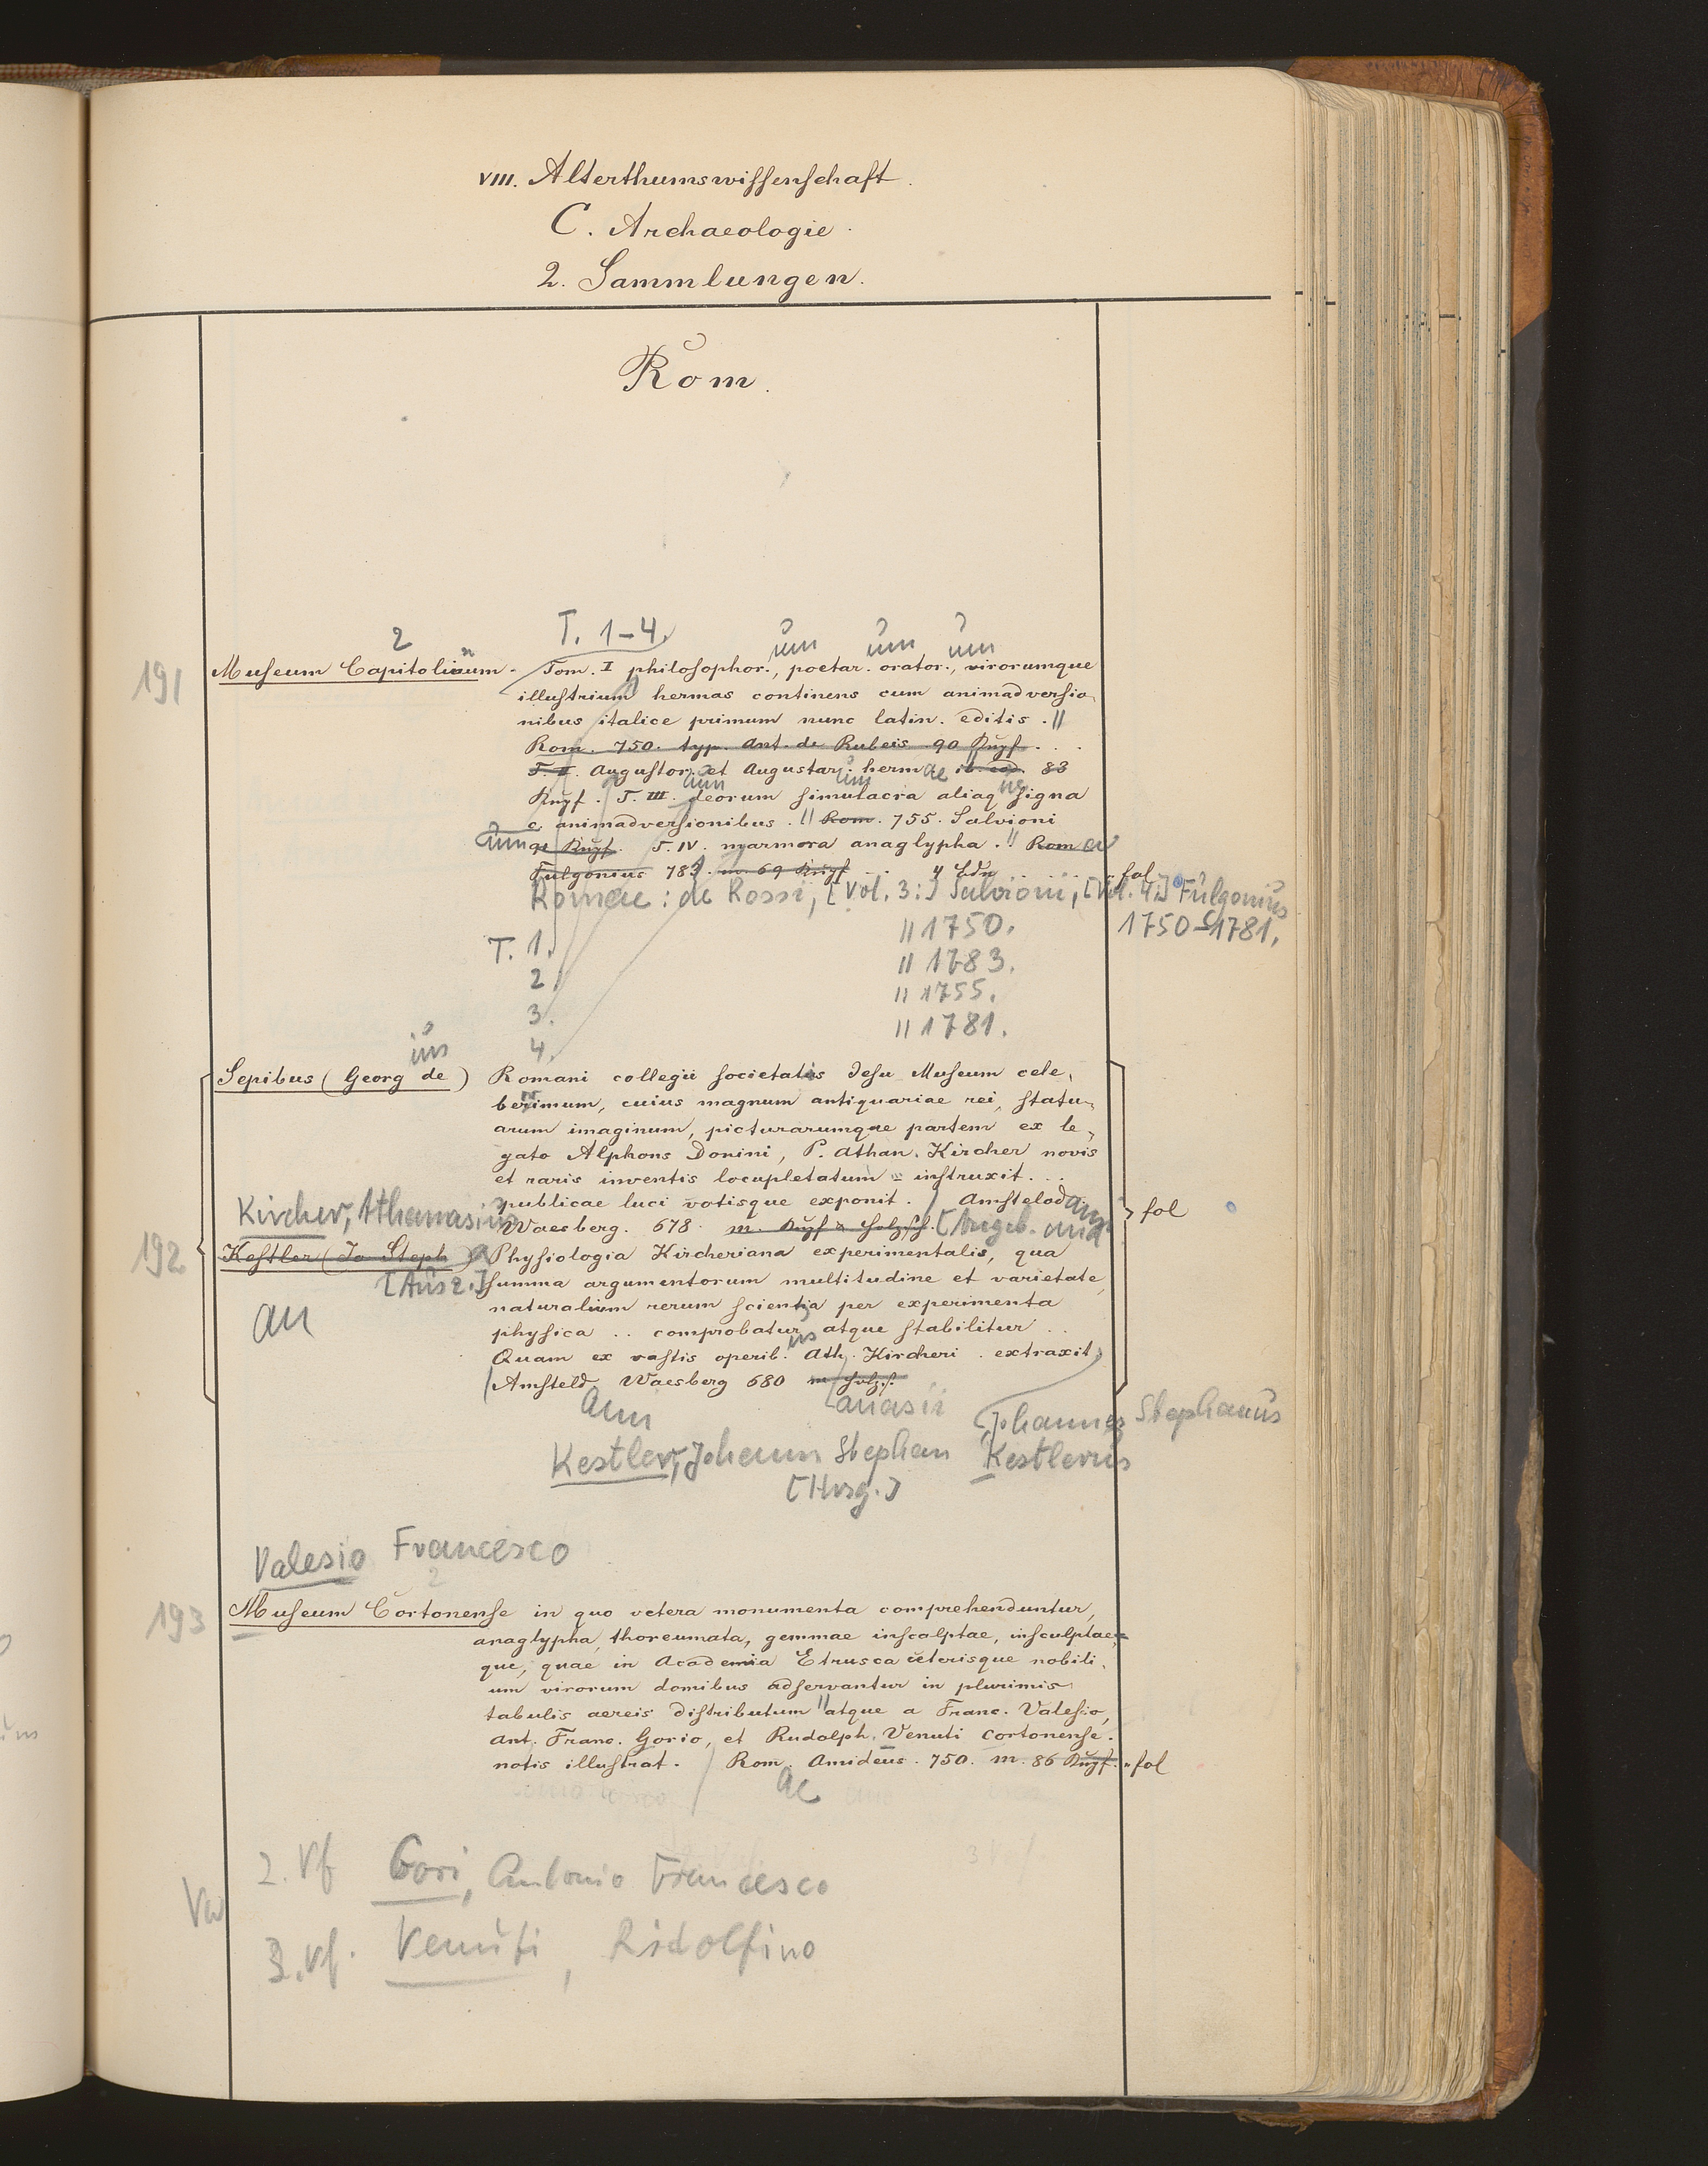 VIII. Alterthumswissenschaft.
C. Archaeologie.
2. Sammlungen.
Rom.
T. 1-4.
2
um um um
191
Museum Capitolinum. Tom. I philosophor., poetar. orator., virorumque
illustrium hermas continens cum animadversio-
nibus italice primum nunc latin. editis. ||
Rom. 750. typ. Ant. de Rubeis. 90 Kupf. . .
T. II. Augustor. et Augustar. hermae ib. eod. 83
Kupf. T. III. deorum simulacra aliaq signa
c. animadversionibus. || Rom. 755. Salvioni
91 Kupf. T. IV. marmora anaglypha. || Rom
Fulgonius 783. m. 69 Kupf. . . 4 Bdn . . . fol
Romae: de Rossi, [Vol. 3:] Salvioni, [Vol. 4:] Fulgonius
1750-1781.
T. 1. || 1750.
2. || 1783.
3. || 1755.
4. || 1781.
ius
Sepibus (Georg de) Romani collegii societatis Jesu Museum cele-
berrimum, cuius magnum antiquariae rei, statu-
arum imaginum, picturarumque partem ex le-
gato Alphons Donini, P. Athan. Kircher novis
et raris inventis locupletatum instruxit. . .
publicae luci votisque exponit. Amstelod
fol
Kircher, Athanasius
Waesberg. 678. m. Kupf & Holzsch. [Angeb. und
192
Kestler (Jo Steph) Physiologia Kircheriana experimentalis, qua
[Ausz.] summa argumentorum multitudine et varietate
naturalium rerum scientia per experimenta
an
physica . . comprobatur atque stabilitur . .
Quam ex vastis operib. Ath. Kircheri . extraxit
Amsteld. Waesberg 680 m Holzs.
am
anasii
Johannes Stephanus
Kestler, Johann Stephan Kestlerus
[Hrsg.]
Valesio Francesco
2
193
Museum Cortonense in quo vetera monumenta comprehenduntur,
anaglypha, thoreumata, gemmae inscalptae, insculptae-
que, quae in Academia Etrusca ceterisque nobili-
um virorum domibus adservantur in plurimis
tabulis aereis distributum || atque a Franc. Valesio,
Ant. Franc. Gorio, et Rudolph. Venuti Cortonense.
notis illustrat. Rom. Amideus. 750. m. 86 Kupf. fol
ae
2. Vf Gori, Antonio Francesco
Vw
3. Vf. Venuti, Ridolfino